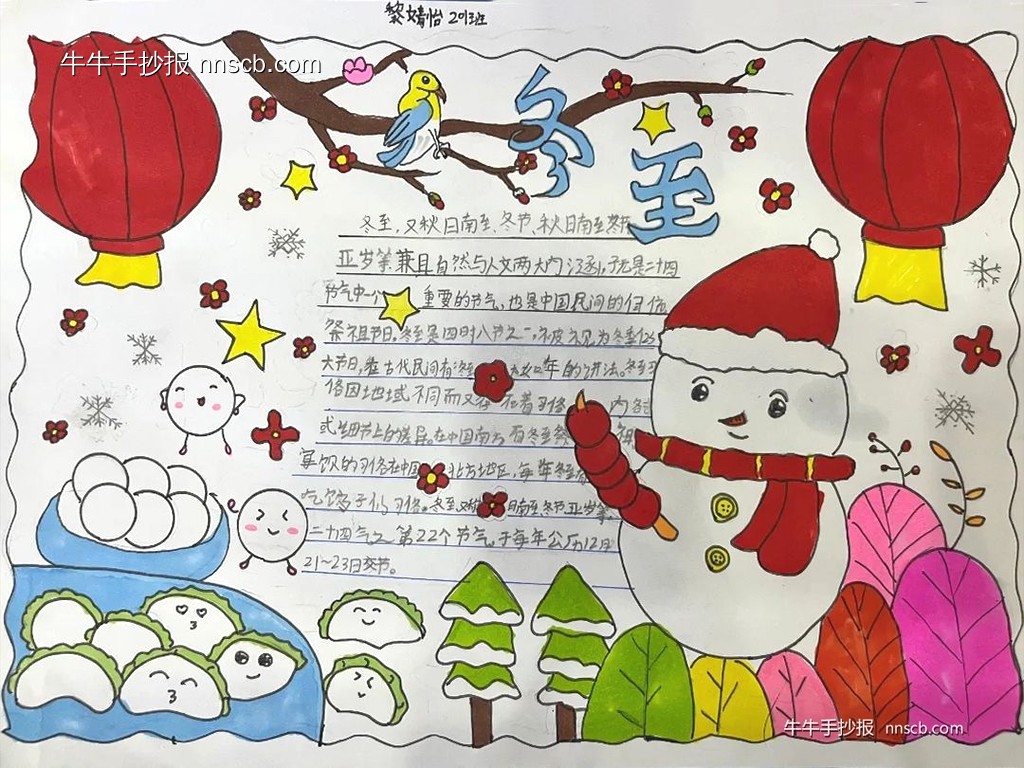 黎婧怡 2013班
牛牛手抄报 nnscb.com
冬至
冬至，又称日南至、冬节、
亚岁等兼具自然与人文两大内涵，于是二十四
节气中一个 重要的节气，也是中国民间的
祭祖节日。冬至是四时八节之一，被视为冬季
大节日，在古代民间有 冬至大如年的讲法。冬至习
俗因地域不同而又存在着习俗 内容
式些细节上的差异。在中国南方，有冬至祭
宴饮的习俗在中国 北方地区，每年冬至
吃饺子的习俗。冬至，又称日南至、冬节、亚岁等
二十四气之 第22个节气，于每年公历12月
21～23日交节。
牛牛手抄报 nnscb.com